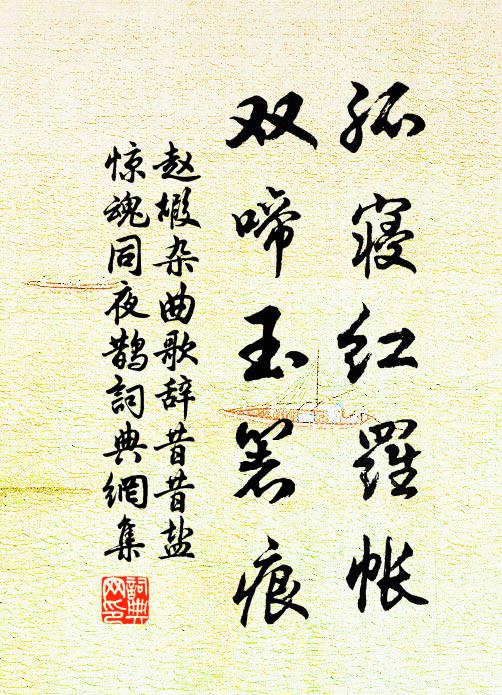 孤寝红羅帐
双啼玉箸痕
赵嘏杂曲歌辞昔昔盐
惊魂同夜鹊詞典網集
詞典
网印